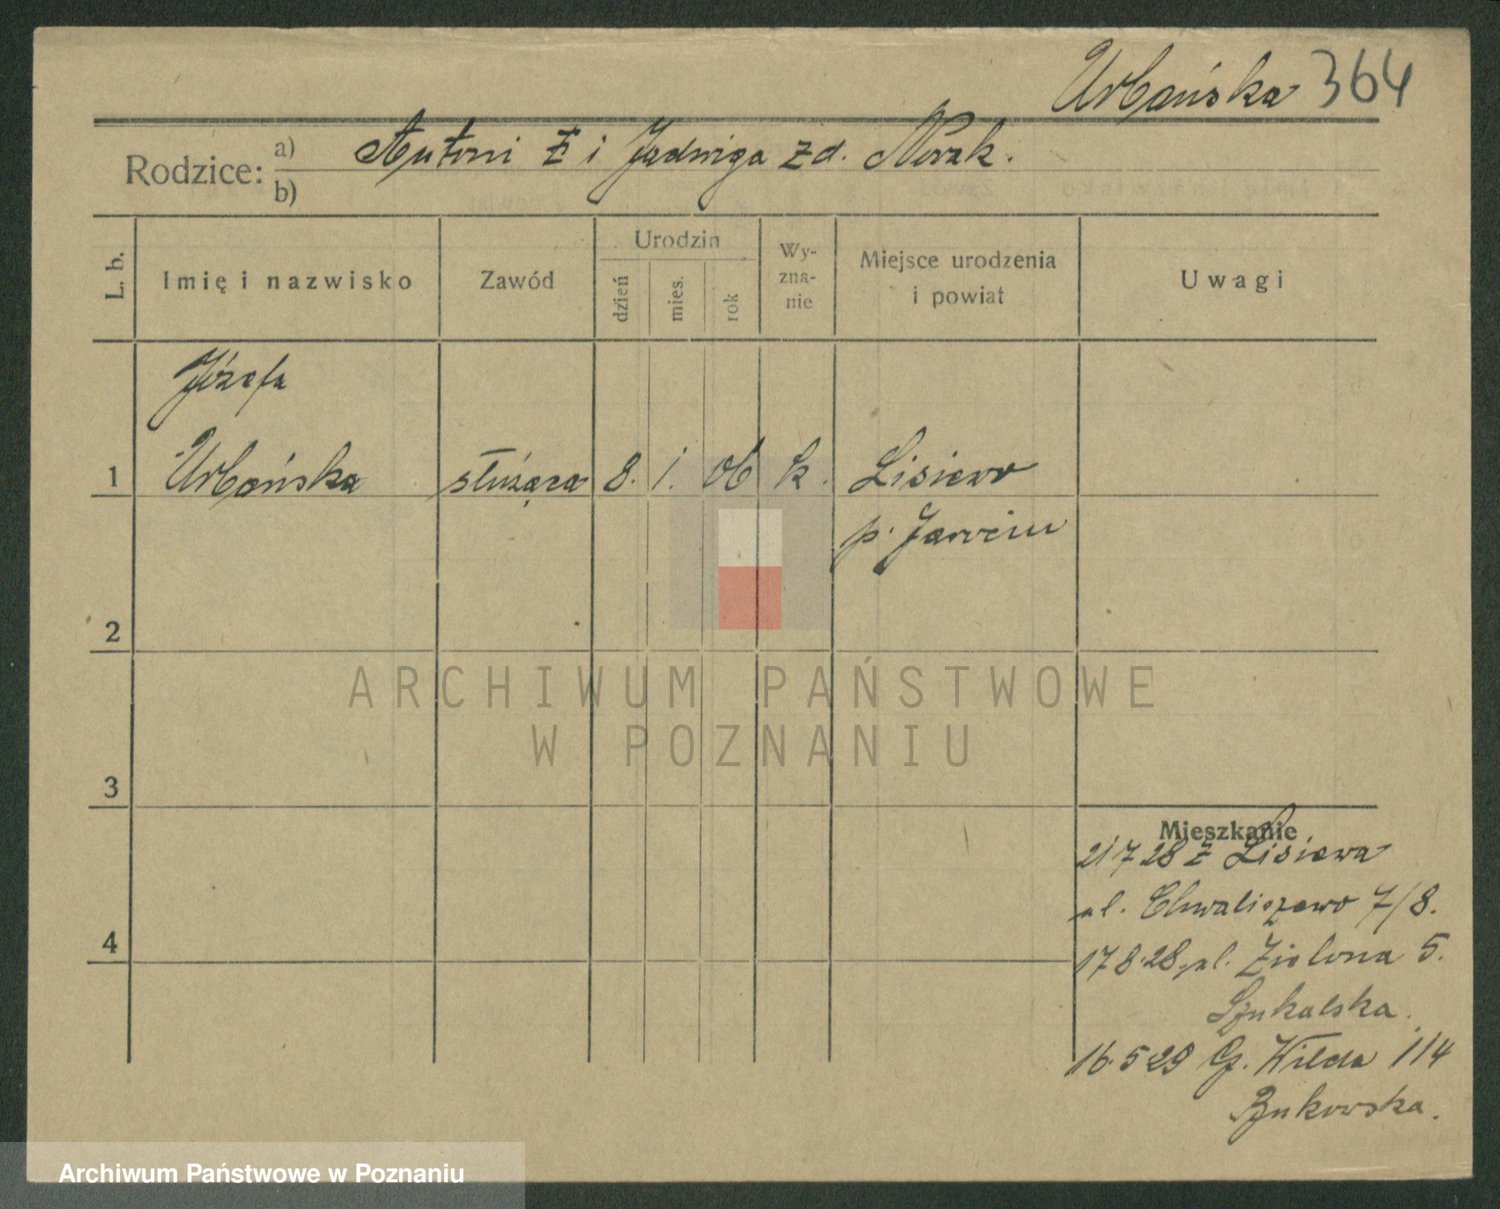 Urbańska 364
Rodzice: a) Antoni i Jadwiga zd. Nowak.
b)
L. b.
Imię i nazwisko
Zawód
Urodzin
dzień
mies.
rok
Wy-
zna-
nie
Miejsce urodzenia
i powiat
Uwagi
Józefa
1 Urbańska służąca 8. 1. 06 k. Lisiewo
p. Jarocin
2
ARCHIWUM PAŃSTWOWE
W POZNANIU
3
Mieszkanie
21 7 28 z Lisiewa
ul. Chwaliszewo 7/8.
4
17 8.28. ul. Zielona 5.
Szukalska.
16.5 29 G. Wilda 114
Bukowska.
Archiwum Państwowe w Poznaniu